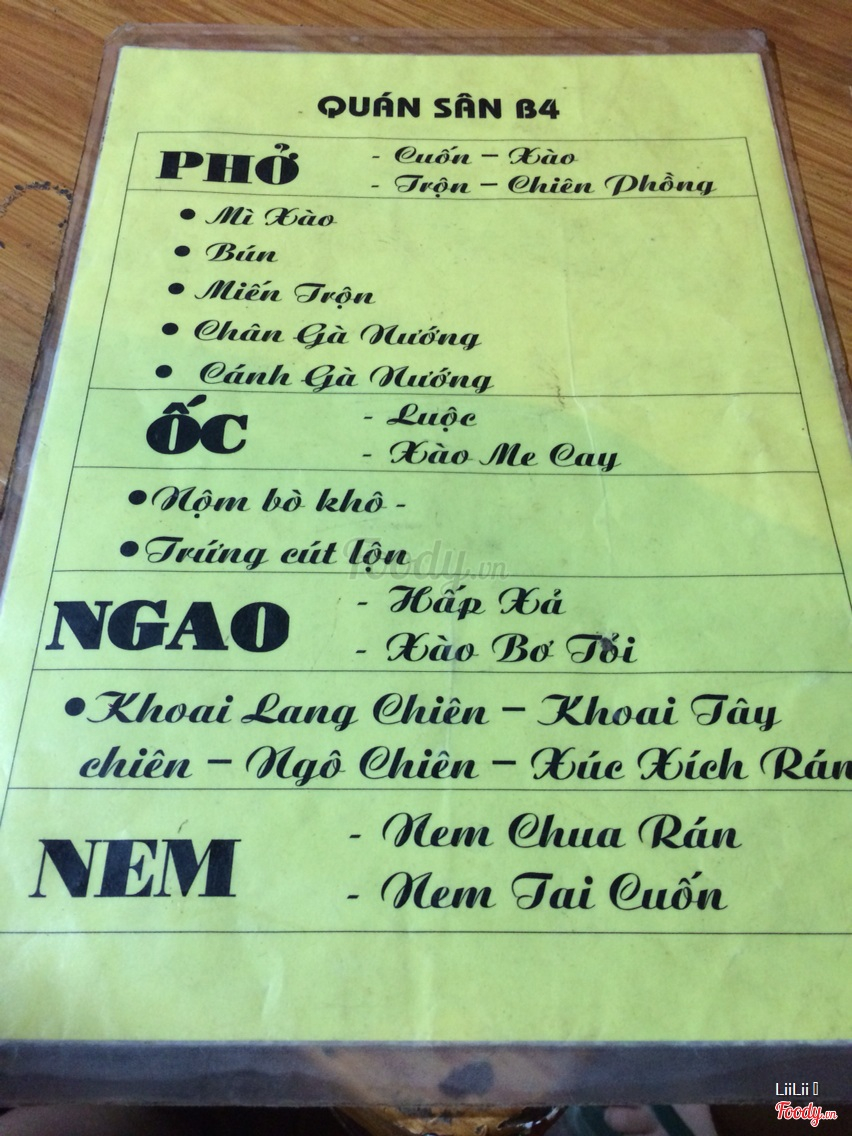 QUÁN SÂN B4
PHỞ
- Cuốn – Xào
- Trộn – Chiên Phồng
• Mì Xào
• Bún
• Miến Trộn
• Chân Gà Nướng
• Cánh Gà Nướng
ỐC
- Luộc
- Xào Me Cay
• Nộm bò khô -
• Trứng cút lộn
Foody.vn
NGAO
- Hấp Xả
- Xào Bơ Tỏi
• Khoai Lang Chiên – Khoai Tây
chiên – Ngô Chiên – Xúc Xích Rán
NEM
- Nem Chua Rán
- Nem Tai Cuốn
LiiLii
Foody.vn